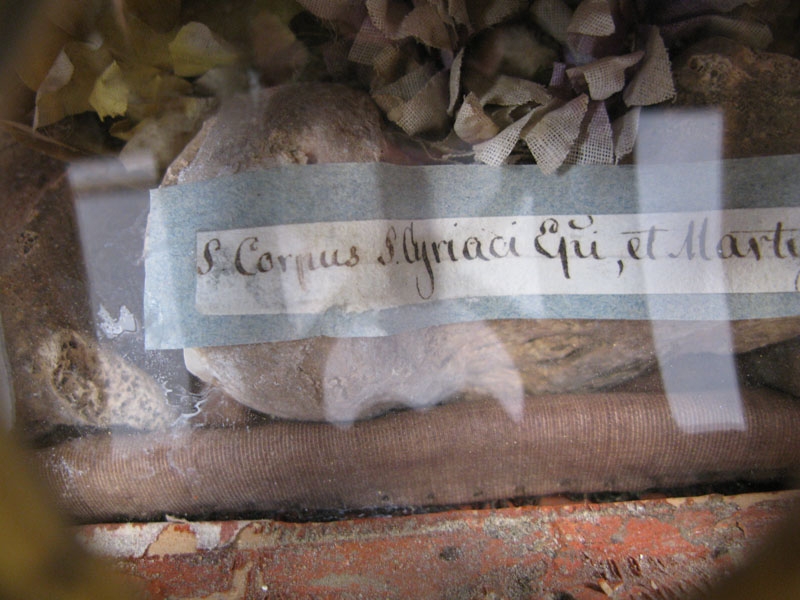 S. Corpus S. Cyriaci Epi, et Marty